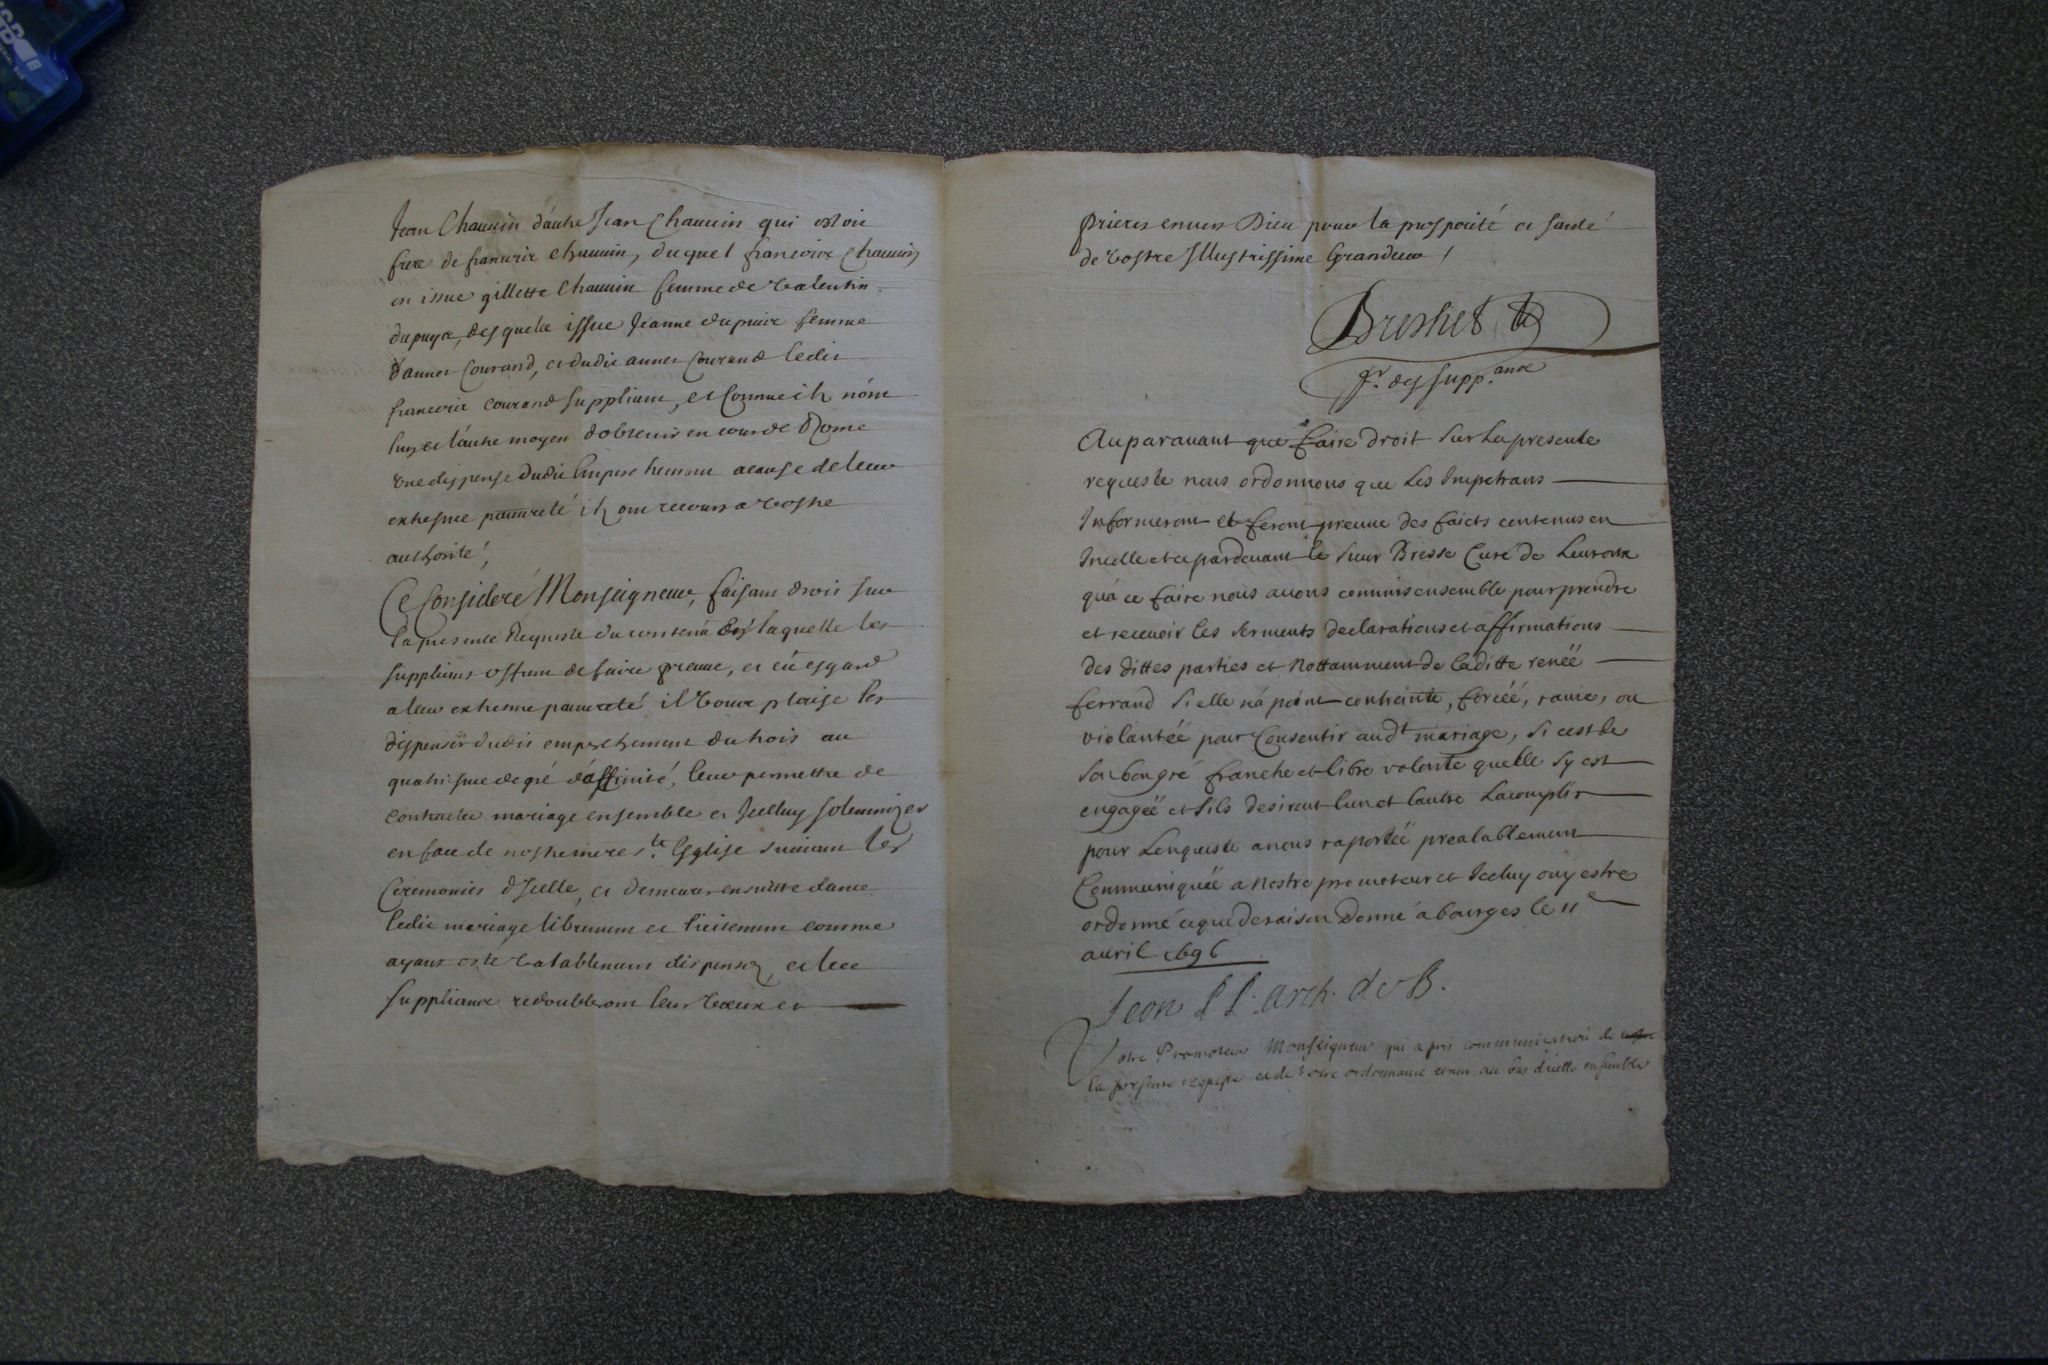 Jean Chauuin dautre Jean Chauuin qui estoit
frere de francois chauuin, duquel francois Chauuin
en issue gillette Chauuin femme de valentin
dupuye, desquelz issue Jeanne dupuie femme
dannet Courand, et dudit annet Courand ledit
francois courand suppliant, et Comme ilz nont
lun et lautre moyen dobtenir en cour de Rome
vne dispense dudit Empeschement a cause de leur
extresme pauureté ilz ont recours a vostre
authorité,
Ce Consideré Monseigneur, faisant droit sur
la presente Requeste du contenu laquelle les
supplians offrent de faire preuue, et eu esgard
a leur extreme pauureté il vous plaise les
dispenser dudit empeschement du trois au
quatriesme degré d'affinité, leur permettre de
contracter mariage ensemble et Icelluy solemnizer
en face de nostre mere ste Esglise suiuant les
Ceremonies d'Icelle, et demeurer ensuitte dans
ledit mariage librement et licitement comme
ayant esté valablement dispensez, et les
supplians redoubleront leurs voeux et
prieres enuers Dieu pour la prosperité et santé
de vostre Illustrissime Grandeur /
Breshet
Pr. des supp.ans
Auparauant que faire droit sur La presente
requeste nous ordonnons que Les Impetrans
Informeront et feront preuue des faicts contenus en
Icelle et ce pardeuant le sieur Bresse Curé de Leuroux
qu'a ce faire nous auons commis ensemble pour prendre
et receuoir les serments declarations et affirmations
des dittes parties et nottamment de laditte renéé
ferrand si elle n'a point contreinte, forcéé, rauie, ou
violantéé pour Consentir audt mariage, si c'est de
son bon gré franche et libre volonté quelle s'y est
engagéé et s'ils desirent lun et lautre Lacomplir
pour Lenqueste a nous raportéé prealablement
Communiquéé a Nostre promoteur et Iceluy ouy estre
ordonné ce que de raison Donné a bourges le 11e
auril 1696
Jean arch. de B.
Votre Promoteur Monseigneur qui a pris communication de
la presente requeste et de votre ordonnance etant au bas d'icelle ensemble